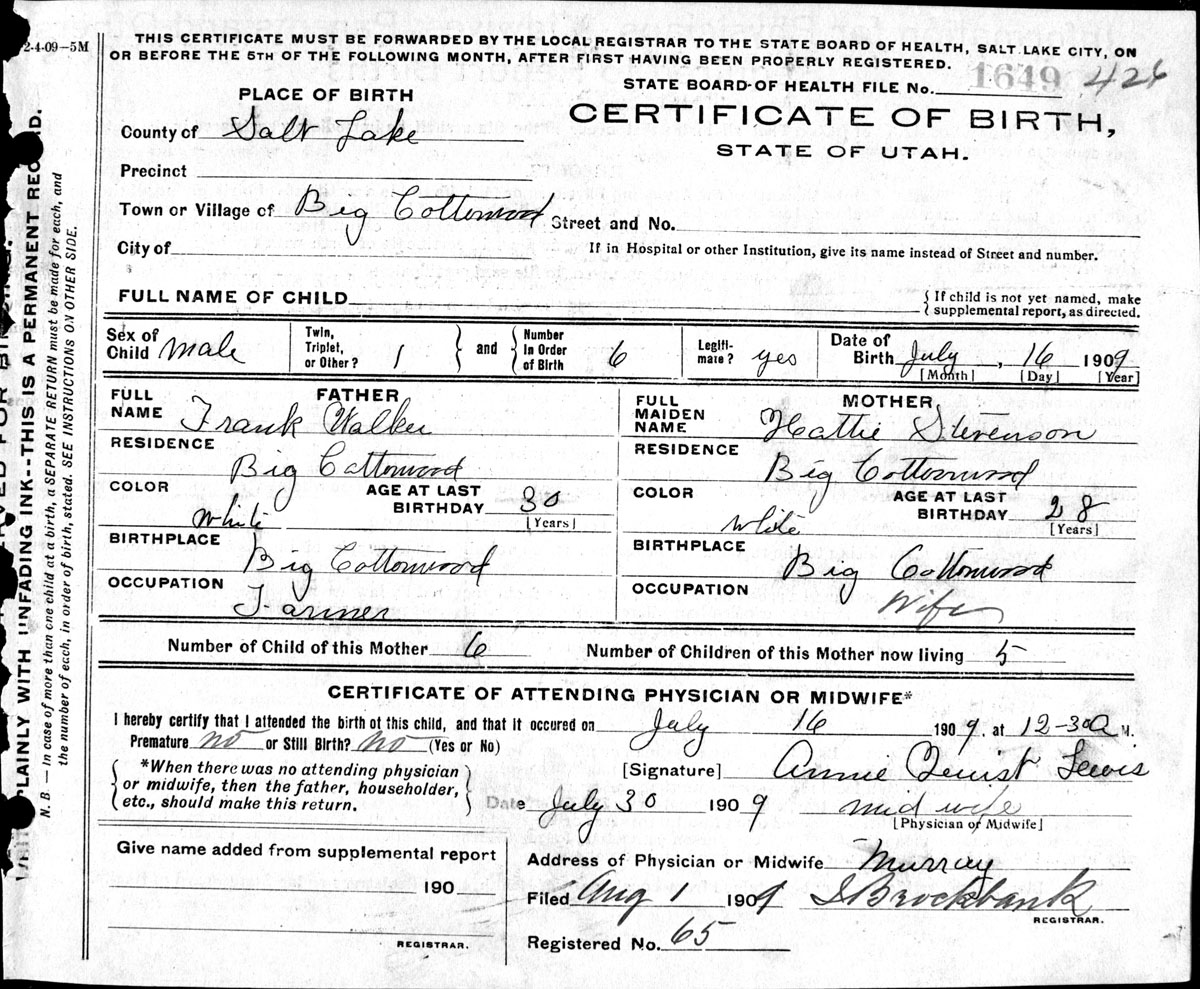 2-4-09-5M
THIS CERTIFICATE MUST BE FORWARDED BY THE LOCAL REGISTRAR TO THE STATE BOARD OF HEALTH, SALT LAKE CITY, ON
OR BEFORE THE 5TH OF THE FOLLOWING MONTH, AFTER FIRST HAVING BEEN PROPERLY REGISTERED.
STATE BOARD OF HEALTH FILE No. 1649 426
PLACE OF BIRTH
CERTIFICATE OF BIRTH,
STATE OF UTAH.
County of Salt Lake
Precinct
Town or Village of Big Cottonwood Street and No.
City of If in Hospital or other Institution, give its name instead of Street and number.
FULL NAME OF CHILD { If child is not yet named, make
supplemental report, as directed.
Sex of Child male Twin, Triplet, or Other? 1 } and { Number In Order of Birth 6 Legiti-mate? yes Date of Birth July, 16 1909
[Month] [Day] [Year]
FATHER
FULL NAME Frank Walker
RESIDENCE
Big Cottonwood
COLOR white AGE AT LAST BIRTHDAY 30
[Years]
BIRTHPLACE
Big Cottonwood
OCCUPATION
Farmer
MOTHER
FULL MAIDEN NAME Hattie Stevenson
RESIDENCE
Big Cottonwood
COLOR white AGE AT LAST BIRTHDAY 28
[Years]
BIRTHPLACE
Big Cottonwood
OCCUPATION
Wife
Number of Child of this Mother 6 Number of Children of this Mother now living 5
CERTIFICATE OF ATTENDING PHYSICIAN OR MIDWIFE*
I hereby certify that I attended the birth of this child, and that it occured on July 16 1909, at 12-30 a M.
Premature no or Still Birth? no (Yes or No)
{ *When there was no attending physician
or midwife, then the father, householder,
etc., should make this return. }
[Signature] Annie Lewis
Date July 30 1909 midwife
[Physician or Midwife]
Give name added from supplemental report
190
REGISTRAR.
Address of Physician or Midwife Murray
Filed Aug 1 1909 Brockbank
REGISTRAR.
Registered No. 65
PLAINLY WITH UNFADING INK--THIS IS A PERMANENT RECORD.
N. B. — In case of more than one child at a birth, a SEPARATE RETURN must be made for each, and
the number of each, in order of birth, stated. SEE INSTRUCTIONS ON OTHER SIDE.